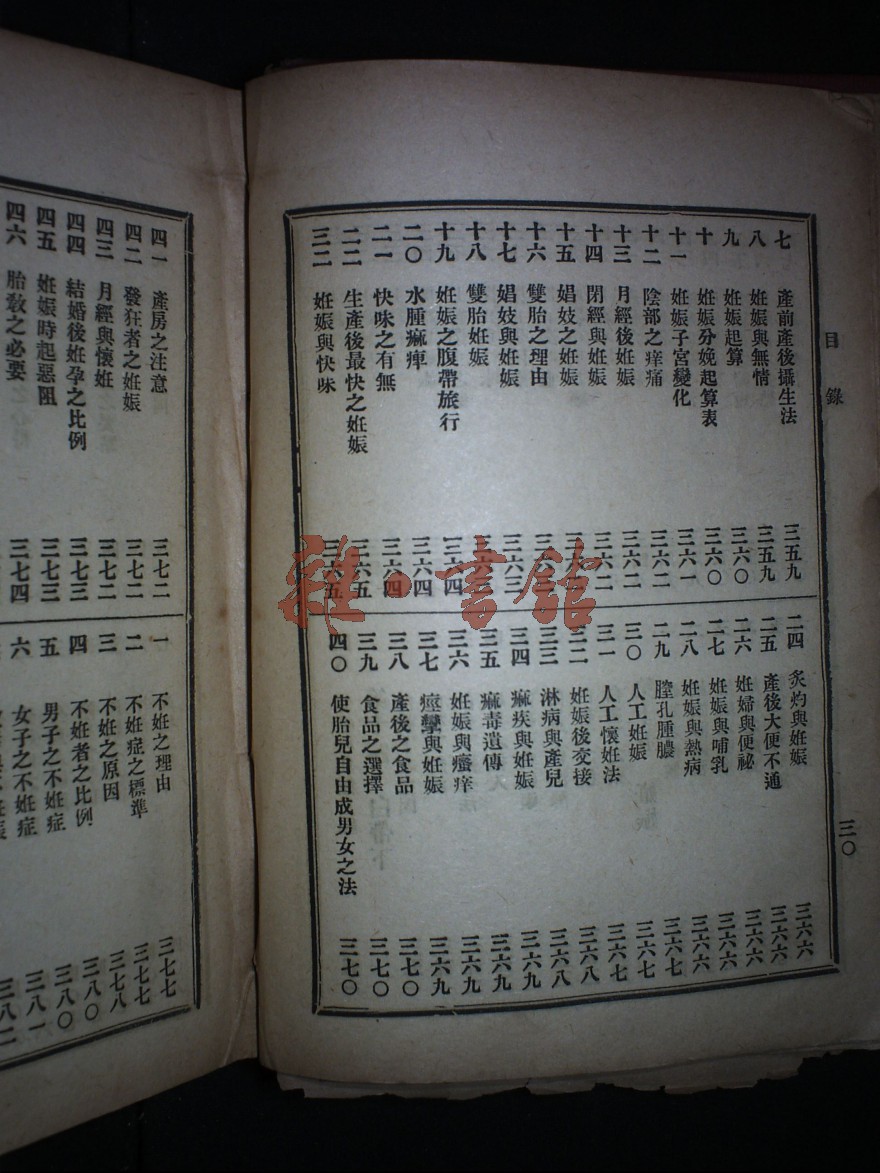 目錄
三〇
七 產前產後攝生法 三五九
八 妊娠與無情 三五九
九 妊娠起算 三六〇
十 妊娠分娩起算表 三六〇
十一 妊娠子宮變化 三六一
十二 陰部之痒痛 三六二
十三 月經後妊娠 三六二
十四 閉經與妊娠 三六二
十五 娼妓之妊娠
十六 雙胎之理由
十七 娼妓與妊娠 三六三
十八 雙胎妊娠
十九 妊娠之腹帶旅行 三六四
二〇 水腫痲痺 三六四
二一 快味之有無 三六四
二二 生產後最快之妊娠 三六五
三二 妊娠與快味 三六五
二四 炙灼與妊娠 三六六
二五 產後大便不通 三六六
二六 妊婦與便祕 三六六
二七 妊娠與哺乳 三六六
二八 妊娠與熱病 三六六
二九 膣孔腫膿 三六七
三〇 人工妊娠 三六七
三一 人工懷妊法 三六七
三二 妊娠後交接 三六八
三三 淋病與產兒 三六八
三四 痲疾與妊娠 三六九
三五 痲毒遺傳 三六九
三六 妊娠與瘙痒 三六九
三七 痙攣與妊娠 三六九
三八 產後之食品 三七〇
三九 食品之選擇 三七〇
四〇 使胎兒自由成男女之法 三七〇
四一 產房之注意 三七二
四二 發狂者之妊娠 三七二
四三 月經與懷妊 三七二
四四 結婚後妊孕之比例 三七三
四五 妊娠時起惡阻 三七三
四六 胎教之必要 三七四
一 不妊之理由 三七七
二 不妊症之標準 三七七
三 不妊之原因 三七八
四 不妊者之比例 三八〇
五 男子之不妊症 三八〇
六 女子之不妊症 三八一
三八二
雜·書館